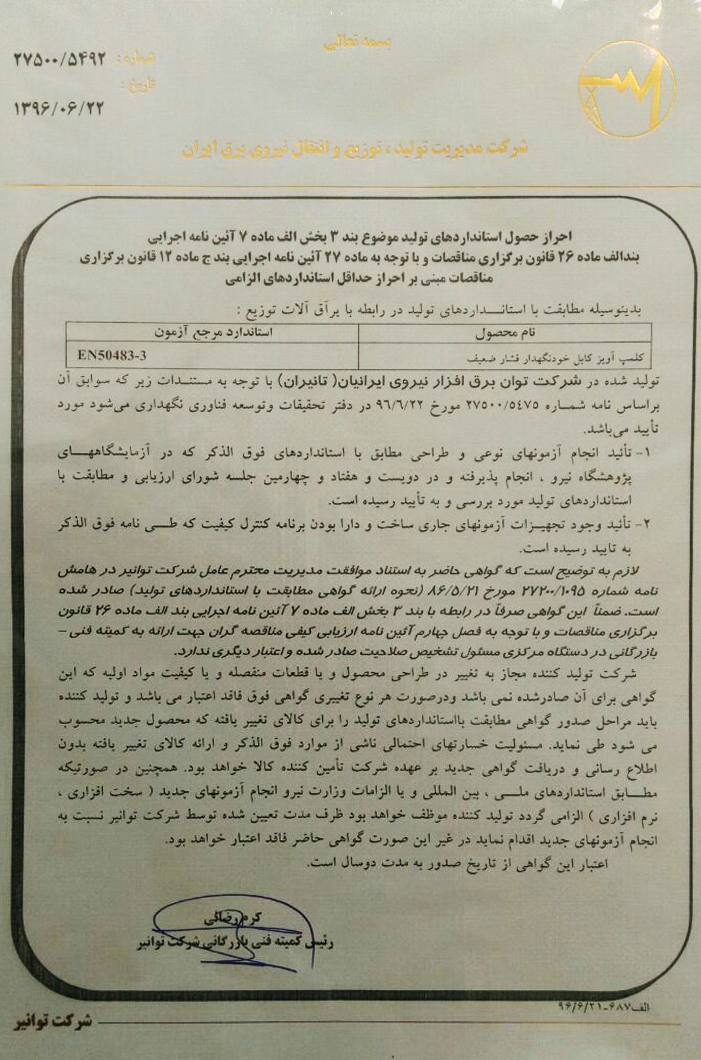 بسمه تعالی
شماره: ۲۷۵۰۰/۵۴۹۲
تاریخ:
۱۳۹۶/۰۶/۲۲
شرکت مدیریت تولید، توزیع و انتقال نیروی برق ایران
احراز حصول استانداردهای تولید موضوع بند ۳ بخش الف ماده ۷ آئین نامه اجرایی
بندالف ماده ۲۶ قانون برگزاری مناقصات و با توجه به ماده ۲۷ آئین نامه اجرایی بند ج ماده ۱۲ قانون برگزاری
مناقصات مبنی بر احراز حداقل استانداردهای الزامی
بدینوسیله مطابقت با استانداردهای تولید در رابطه با یراق آلات توزیع :
نام محصول استاندارد مرجع آزمون
کلمپ آویز کابل خودنگهدار فشار ضعیف EN50483-3
تولید شده در شرکت توان برق افزار نیروی ایرانیان( تانیران) با توجه به مستندات زیر که سوابق آن
براساس نامه شماره ۲۷۵۰۰/۵٤۷۵ مورخ ۹۶/۶/۲۲ در دفتر تحقیقات وتوسعه فناوری نگهداری می‌شود مورد
تأیید می‌باشد.
۱- تأئید انجام آزمونهای نوعی و طراحی مطابق با استانداردهای فوق الذکر که در آزمایشگاههای
پژوهشگاه نیرو ، انجام پذیرفته و در دویست و هفتاد و چهارمین جلسه شورای ارزیابی و مطابقت با
استانداردهای تولید مورد بررسی و به تأیید رسیده است.
۲- تأئید وجود تجهیزات آزمونهای جاری ساخت و دارا بودن برنامه کنترل کیفیت که طی نامه فوق الذکر
به تایید رسیده است.
لازم به توضیح است که گواهی حاضر به استناد موافقت مدیریت محترم عامل شرکت توانیر در هامش
نامه شماره ۲۷۲۰۰/۱۰۹۵ مورخ ۸۶/۵/۲۱ (نحوه ارائه گواهی مطابقت با استانداردهای تولید) صادر شده
است. ضمناً این گواهی صرفاً در رابطه با بند ۳ بخش الف ماده ۷ آئین نامه اجرایی بند الف ماده ۲۶ قانون
برگزاری مناقصات و با توجه به فصل چهارم آئین نامه ارزیابی کیفی مناقصه گران جهت ارائه به کمیته فنی –
بازرگانی در دستگاه مرکزی مسئول تشخیص صلاحیت صادر شده و اعتبار دیگری ندارد.
شرکت تولید کننده مجاز به تغییر در طراحی محصول و یا قطعات منفصله و یا کیفیت مواد اولیه که این
گواهی برای آن صادرشده نمی باشد ودرصورت هر نوع تغییری گواهی فوق فاقد اعتبار می باشد و تولید کننده
باید مراحل صدور گواهی مطابقت بااستانداردهای تولید را برای کالای تغییر یافته که محصول جدید محسوب
می شود طی نماید. مسئولیت خسارتهای احتمالی ناشی از موارد فوق الذکر و ارائه کالای تغییر یافته بدون
اطلاع رسانی و دریافت گواهی جدید بر عهده شرکت تأمین کننده کالا خواهد بود. همچنین در صورتیکه
مطابق استانداردهای ملی ، بین المللی و یا الزامات وزارت نیرو انجام آزمونهای جدید ( سخت افزاری ،
نرم افزاری ) الزامی گردد تولید کننده موظف خواهد بود ظرف مدت تعیین شده توسط شرکت توانیر نسبت به
انجام آزمونهای جدید اقدام نماید در غیر این صورت گواهی حاضر فاقد اعتبار خواهد بود.
اعتبار این گواهی از تاریخ صدور به مدت دوسال است.
کرم رضائی
رئیس کمیته فنی بازرگانی شرکت توانیر
الف۶۸۷-۹۶/۶/۲۱
شرکت توانیر